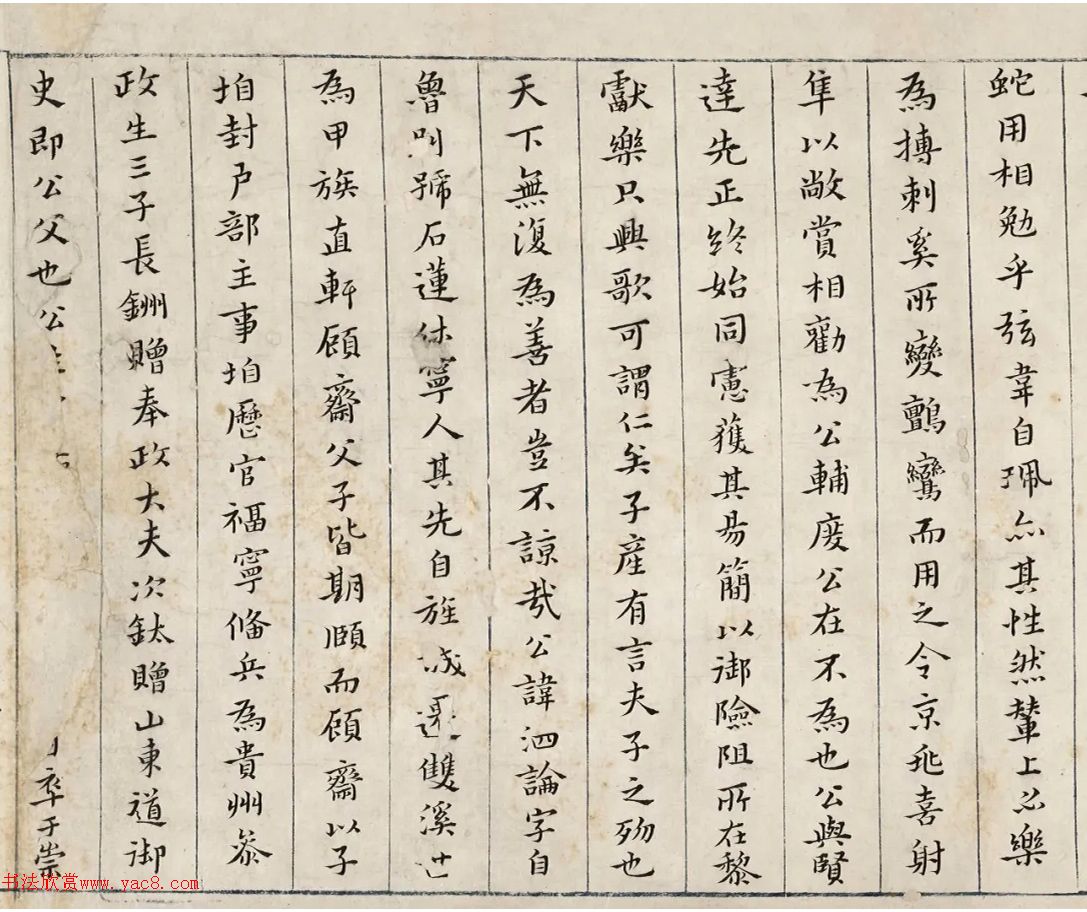 蛇用相勉乎弦韋自珮亦其性然輦上以樂
為摶刺奚所變鸇鸞而用之令京兆喜射
隼以敞賞相勸為公輔庋公在不為也公與賢
達先正終始同憲獲其易簡以御險阻所在黎
獻樂只興歌可謂仁矣子產有言夫子之歾也
天下無復為善者豈不諒哉公諱泗論字自
魯別號石蓮休寧人其先自旌城遷雙溪世
為甲族直軒顧齋父子皆期頤而顧齋以子
垍封戶部主事垍歷官福寧備兵為貴州叅
政生三子長鉶贈奉政大夫次鈦贈山東道御
史即公父也公 卒于崇
书法欣赏www.yac8.com